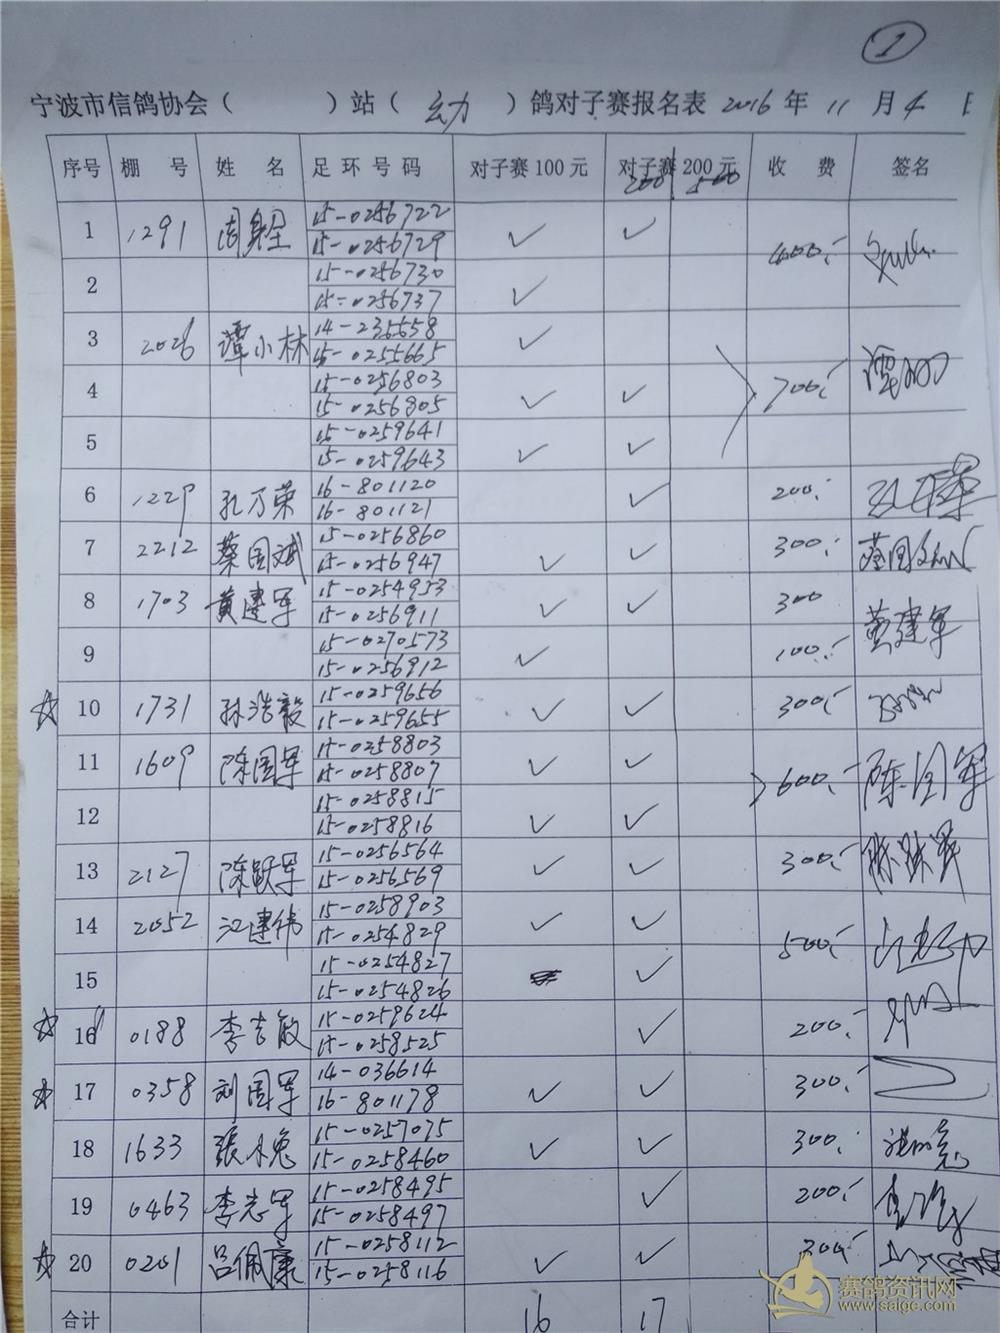 ①
宁波市信鸽协会（ ）站（ ）鸽对子赛报名表 2016 年 11 月 4 日
序号 棚 号 姓 名 足 环 号 码 对子赛 100 元 对子赛 200 元 收 费 签名
200 500
1 1291 15-0256722 ✓ ✓ 400.-
15-0256729
2 15-0256730 ✓
15-0256737
3 2026 谭小林 14-235658 ✓
15-0255665
4 15-0256803 ✓ ✓ 700.-
15-0256805
5 15-0259641 ✓ ✓
15-0259643
6 1229 孔万荣 16-801120 ✓ 200.-
16-801121
7 2212 蔡国斌 15-0256860 ✓ ✓ 300.- 蔡国斌
15-0256947
8 1703 黄建军 15-0254933 ✓ ✓ 300 黄建军
15-0256911
9 15-0270573 ✓ 100.-
15-0256912
☆ 10 1731 孙浩毅 15-0259656 ✓ ✓ 300.-
15-0259655
11 1609 陈国军 15-0258803 ✓ ✓ 600.- 陈国军
15-0258807
12 15-0258815 ✓ ✓
15-0258816
13 2127 陈跃军 15-0256564 ✓ ✓ 300.- 陈跃军
15-0256569
14 2052 江建伟 15-0258903 ✓ ✓ 500.-
15-0254829
15 15-0254827 ✓
15-0254826
☆ 16 0188 李吉敏 15-0259624 ✓ 200.-
15-0258525
☆ 17 0358 刘国军 14-036614 ✓ ✓ 300.-
16-801178
18 1633 張小兔 15-0257075 ✓ ✓ 300.-
15-0258460
19 0463 李志军 15-0258495 ✓ 200.-
15-0258497
☆ 20 0201 吕佩康 15-0258112 ✓ ✓ 300.-
15-0258116
合计 16 17
赛鸽资讯网
www.saigc.com